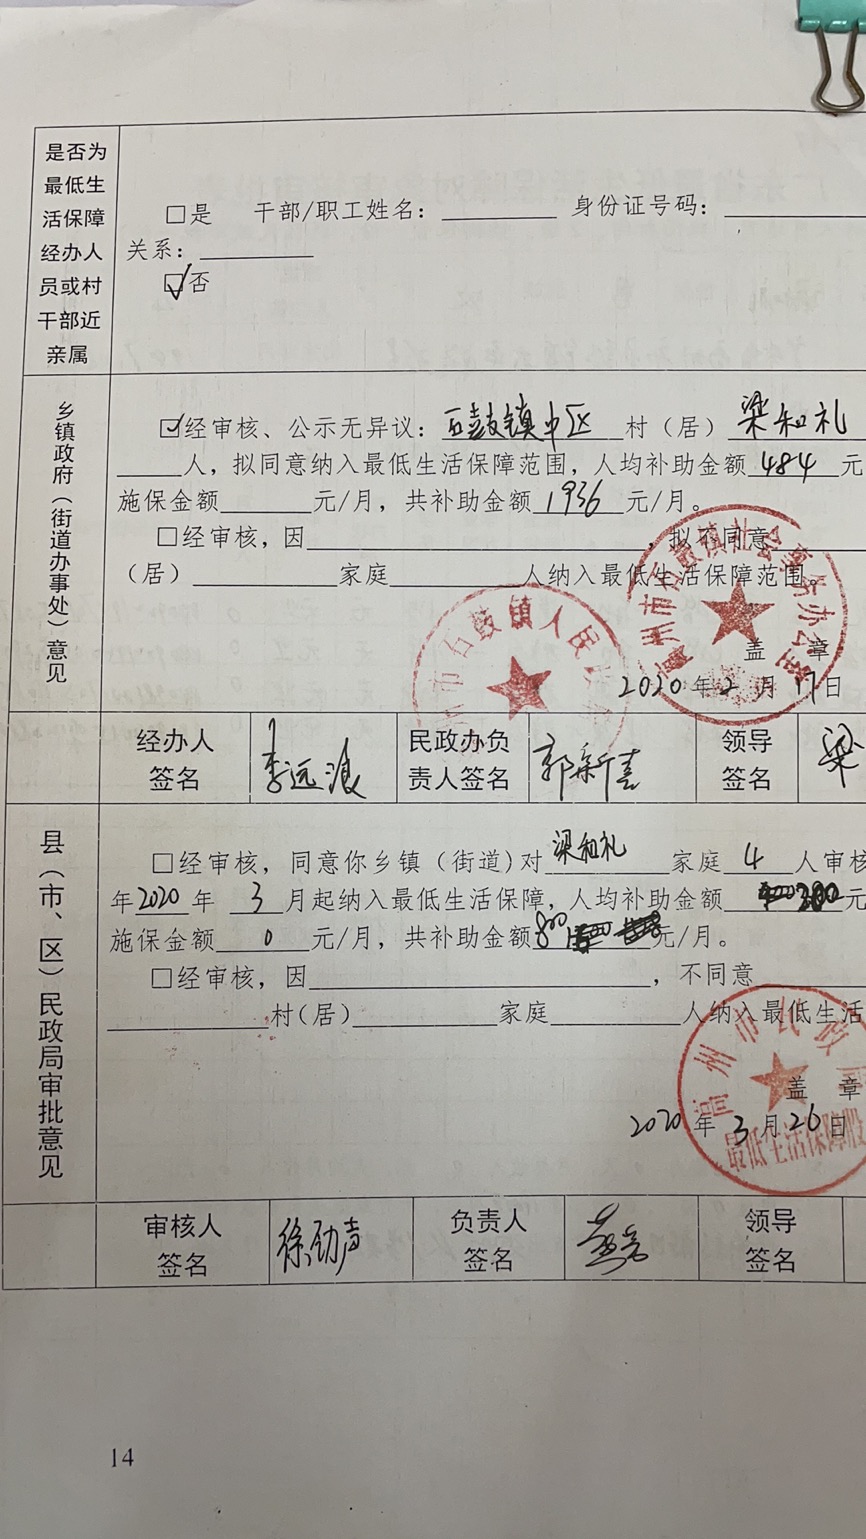 是否为
最低生
活保障
经办人
员或村
干部近
亲属
□是 干部/职工姓名：________ 身份证号码：________
关系：________
☑否
乡镇政府（街道办事处）意见
☑经审核、公示无异议：石鼓镇中区 村（居）梁和礼
____人，拟同意纳入最低生活保障范围，人均补助金额 484 元
施保金额______元/月，共补助金额 1936 元/月。
□经审核，因________________，拟不同意
（居）________家庭________人纳入最低生活保障范围
盖 章
2020 年 2 月 17 日
州市石鼓镇人民
州市石鼓镇社会事务办公室
经办人
签名
李远浪
民政办负
责人签名
郭新喜
领导
签名
梁
县（市、区）民政局审批意见
□经审核，同意你乡镇（街道）对 梁和礼 家庭 4 人审核
年 2020 年 3 月起纳入最低生活保障，人均补助金额 元
施保金额 0 元/月，共补助金额 800 元/月。
□经审核，因________________，不同意________
________村（居）________家庭________人纳入最低生活
盖 章
2020 年 3 月 26 日
高州市民政
最低生活保障股
审核人
签名
徐劲声
负责人
签名
领导
签名
14